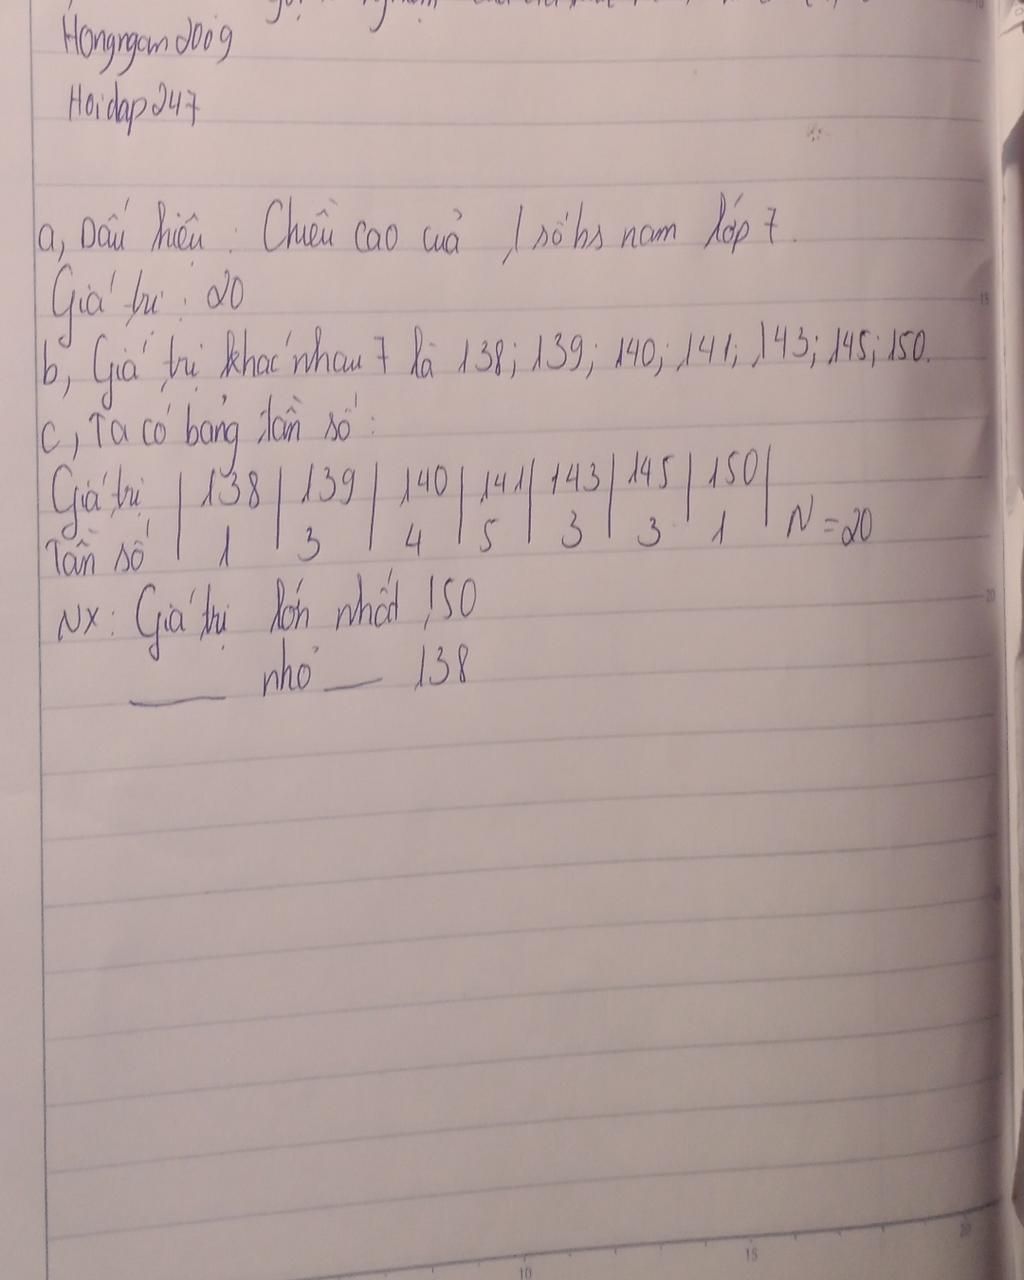 Hongngam2009
Hoidap247
a, Dấu hiệu : Chiều cao cuả 1 số hs nam lớp 7.
Giá trị : 20
b, Giá trị khác nhau 7 là 138; 139; 140; 141; 143; 145; 150.
c, Ta có bảng tần số :
Giá trị | 138 | 139 | 140 | 141 | 143 | 145 | 150 |
Tần số | 1 | 3 | 4 | 5 | 3 | 3 | 1 | N = 20
NX : Giá trị lớn nhất 150
___ nhỏ ___ 138
15
20
10
15
20